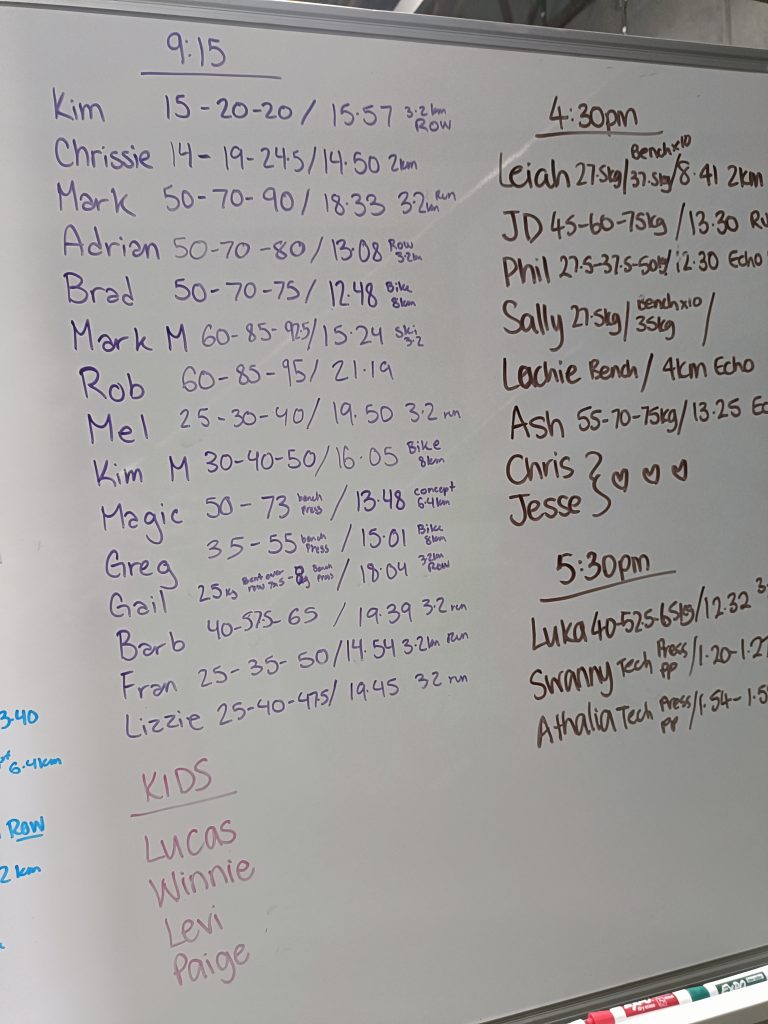 9:15
Kim 15-20-20/ 15.57 3.2km Row
Chrissie 14-19-24.5/14.50 2km
Mark 50-70-90/ 18.33 3.2km Run
Adrian 50-70-80/13.08 Row 3.2km
Brad 50-70-75/ 12.48 Bike 8km
Mark M 60-85-92.5/15.24 Ski 3.2
Rob 60-85-95/ 21.19
Mel 25-30-40/ 19.50 3.2 run
Kim M 30-40-50/16.05 Bike 8km
Magic 50-73 bench press / 13.48 concept 6.4km
Greg 35-55 bench Press / 15.01 Bike 8km
Gail 25kg Bent over row Bench Press / 18.04 3.2km Row
Barb 40-57.5-65 / 19.39 3.2 run
Fran 25-35-50/14.54 3.2km Run
Lizzie 25-40-47.5/ 19.45 32 run
KIDS
Lucas
Winnie
Levi
Paige
4:30pm
Leiah 27.5kg/Bench x10 37.5kg/8.41 2km
JD 45-60-75kg /13.30
Phil 27.5-37.5-50kg/12.30 Echo
Sally 27.5kg/Bench x10 35kg /
Lachie Bench / 4km Echo
Ash 55-70-75kg/13.25
Chris } ♡ ♡ ♡
Jesse
5:30pm
Luka 40-52.5-65kg/12.32
Swanny Tech Press PP /1.20-1.27
Athalia Tech Press PP /1.54-
3.40
6.4km
Row
2 km
EXPO